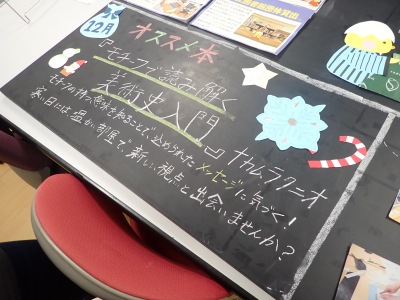 12月
オススメ本
『モチーフで読み解く
美術史入門』ナカムラクニオ
モチーフの持つ意味を知ることで、込められたメッセージに気づく！
寒い日には温かい部屋で、新しい視点と出会いませんか？